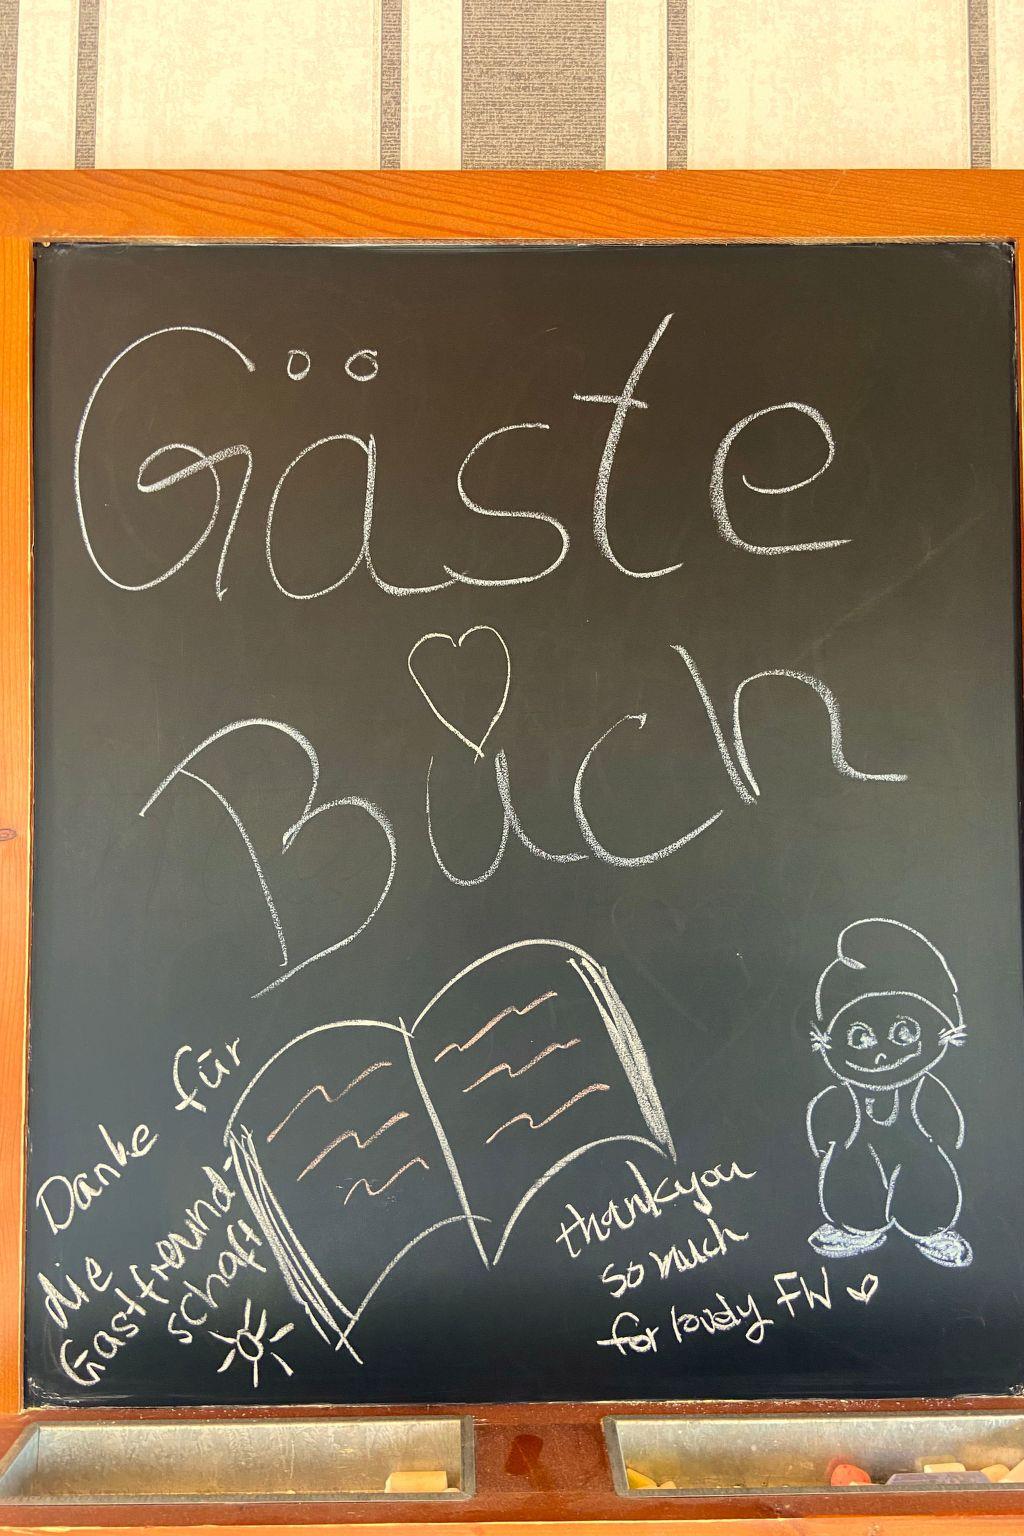 Gäste
Buch
Danke für
die
Gastfreund-
schaft
thankyou
so much
for lovely FW